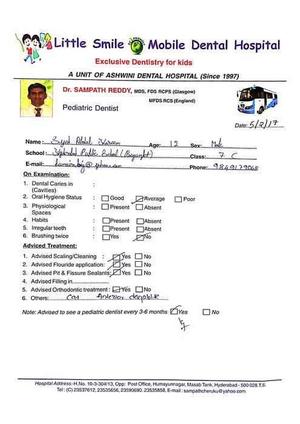 Little Smile Mobile Dental Hospital
Exclusive Dentistry for kids
A UNIT OF ASHWINI DENTAL HOSPITAL (Since 1997)
Dr. SAMPATH REDDY, MDS, FDS RCPS (Glasgow)
MFDS RCS (England)
Pediatric Dentist
Date: 5/2/17
Name: Syed Abdul Age: 12 Sex: Male
School: Public School Class: 7 C
E-mail: Phone:
On Examination:
1. Dental Caries in
(Cavities)
2. Oral Hygiene Status : Good Average Poor
3. Physiological : Present Absent
Spaces
4. Habits : Present Absent
5. Irregular teeth : Present Absent
6. Brushing twice : Yes No
Adviced Treatment:
1. Advised Scaling/Cleaning : Yes No
2. Advised Flouride application: Yes No
3. Advised Pit & Fissure Sealants: Yes No
4. Advised Filling in
5. Advised Orthodontic treatment : Yes No
6. Others: Anterior deepbite
Note: Advised to see a pediatric dentist every 3-6 months Yes No
Hospital Address:-H.No. 10-3-304/13, Opp: Post Office, Humayunnagar, Masab Tank, Hyderabad - 500 028.T.S
Tel: (C) 23537612, 23535656, 23590690, 23535858, E-mail: sampathcheruku@yahoo.com